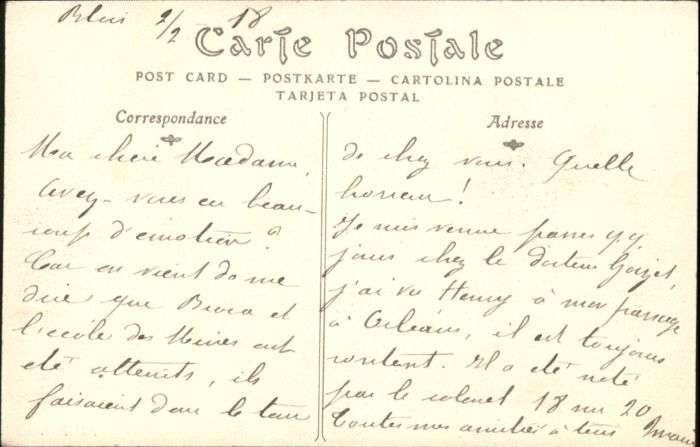 Blois 2/2 18
Carte Postale
POST CARD — POSTKARTE — CARTOLINA POSTALE
TARJETA POSTAL
Correspondance
Ma chère Madame,
Avez-vous eu beau-
coup d'émotion?
Car on vient de me
dire que Broca et
l'école des Mines ont
été atteints, ils
faisaient donc le tour
Adresse
de chez vous. Quelle
horreur!
Je suis venue passer qq
jours chez le docteur
j'ai vu Henry à mon passage
à Orléans, il est toujours
content. Il a été noté
par le colonel 18 sur 20
Toutes mes amitiés à tous